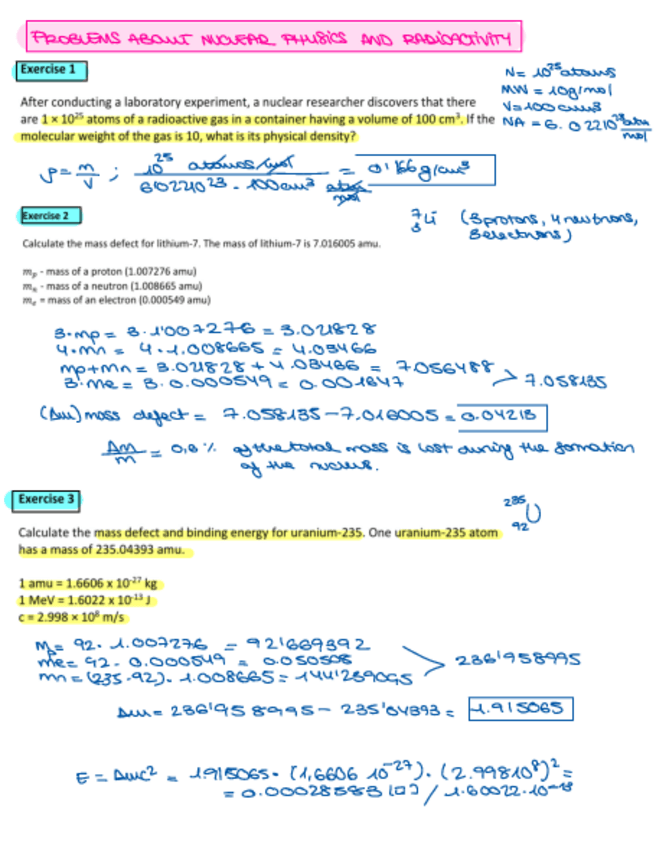 PROBLEMS ABOUT NUCLEAR PHYSICS AND RADIOACTIVITY
Exercise 1
N= 10^25 atoms
MW = 10g/mol
V=100cm³
NA = 6.022 10^23 atm/mol
After conducting a laboratory experiment, a nuclear researcher discovers that there
are 1 × 10²⁵ atoms of a radioactive gas in a container having a volume of 100 cm³. If the
molecular weight of the gas is 10, what is its physical density?
ρ = m/V ; 10^25 atoms/mol / 6'022 10^23 · 100cm³ atoms/mol = 0'166g/cm³
Exercise 2
⁷₃Li (3protons, 4neutrons,
3electrons)
Calculate the mass defect for lithium-7. The mass of lithium-7 is 7.016005 amu.
mₚ - mass of a proton (1.007276 amu)
mₙ - mass of a neutron (1.008665 amu)
mₑ = mass of an electron (0.000549 amu)
3·mp = 3·1'007276 = 3.021828
4·mn = 4·1.008665 = 4.03466
mp+mn = 3.021828 + 4.03466 = 7.056488
3·me = 3·0.000549 = 0.001647
> 7.058135
(Δm) mass defect = 7.058135-7.016005 = 0.04213
Δm/m = 0,6% of the total mass is lost during the formation
of the nucleus.
Exercise 3
²³⁵₉₂U
Calculate the mass defect and binding energy for uranium-235. One uranium-235 atom
has a mass of 235.04393 amu.
1 amu = 1.6606 x 10⁻²⁷ kg
1 MeV = 1.6022 x 10⁻¹³ J
c = 2.998 × 10⁸ m/s
Mp= 92· 1.007276 = 92'669392
me= 92· 0.000549 = 0.050508
mn = (235-92)· 1.008665 = 144'239095
> 236'958995
Δm = 236'958995 - 235'04393 = 1.915065
E = Δmc² = 1'915065· (1,6606 10^-27)· (2.998 10^8)² =
= 0.00028583 [J] / 1.60022·10^-13